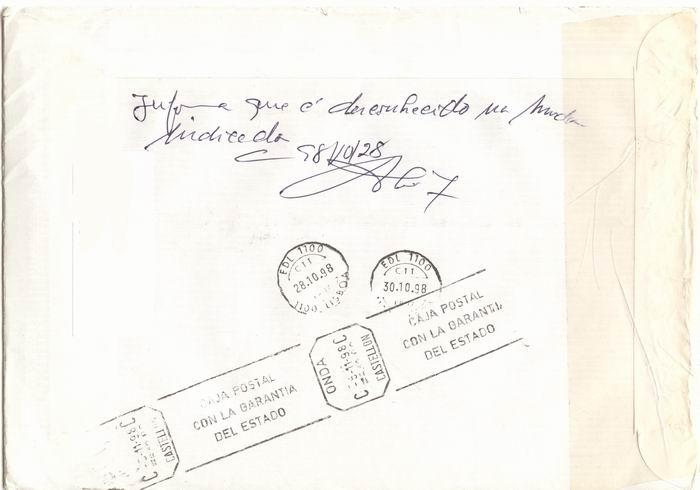 Informa que é desconhecido na morada
Indicada
98/10/28
EDL 1100
CTT
28.10.98
LISBOA
EDL 1100
CTT
30.10.98
CAJA POSTAL
CON LA GARANTIA
DEL ESTADO
ONDA
-11-98
CASTELLON
CAJA POSTAL
CON LA GARANTIA
DEL ESTADO
-11-98
CASTELLON